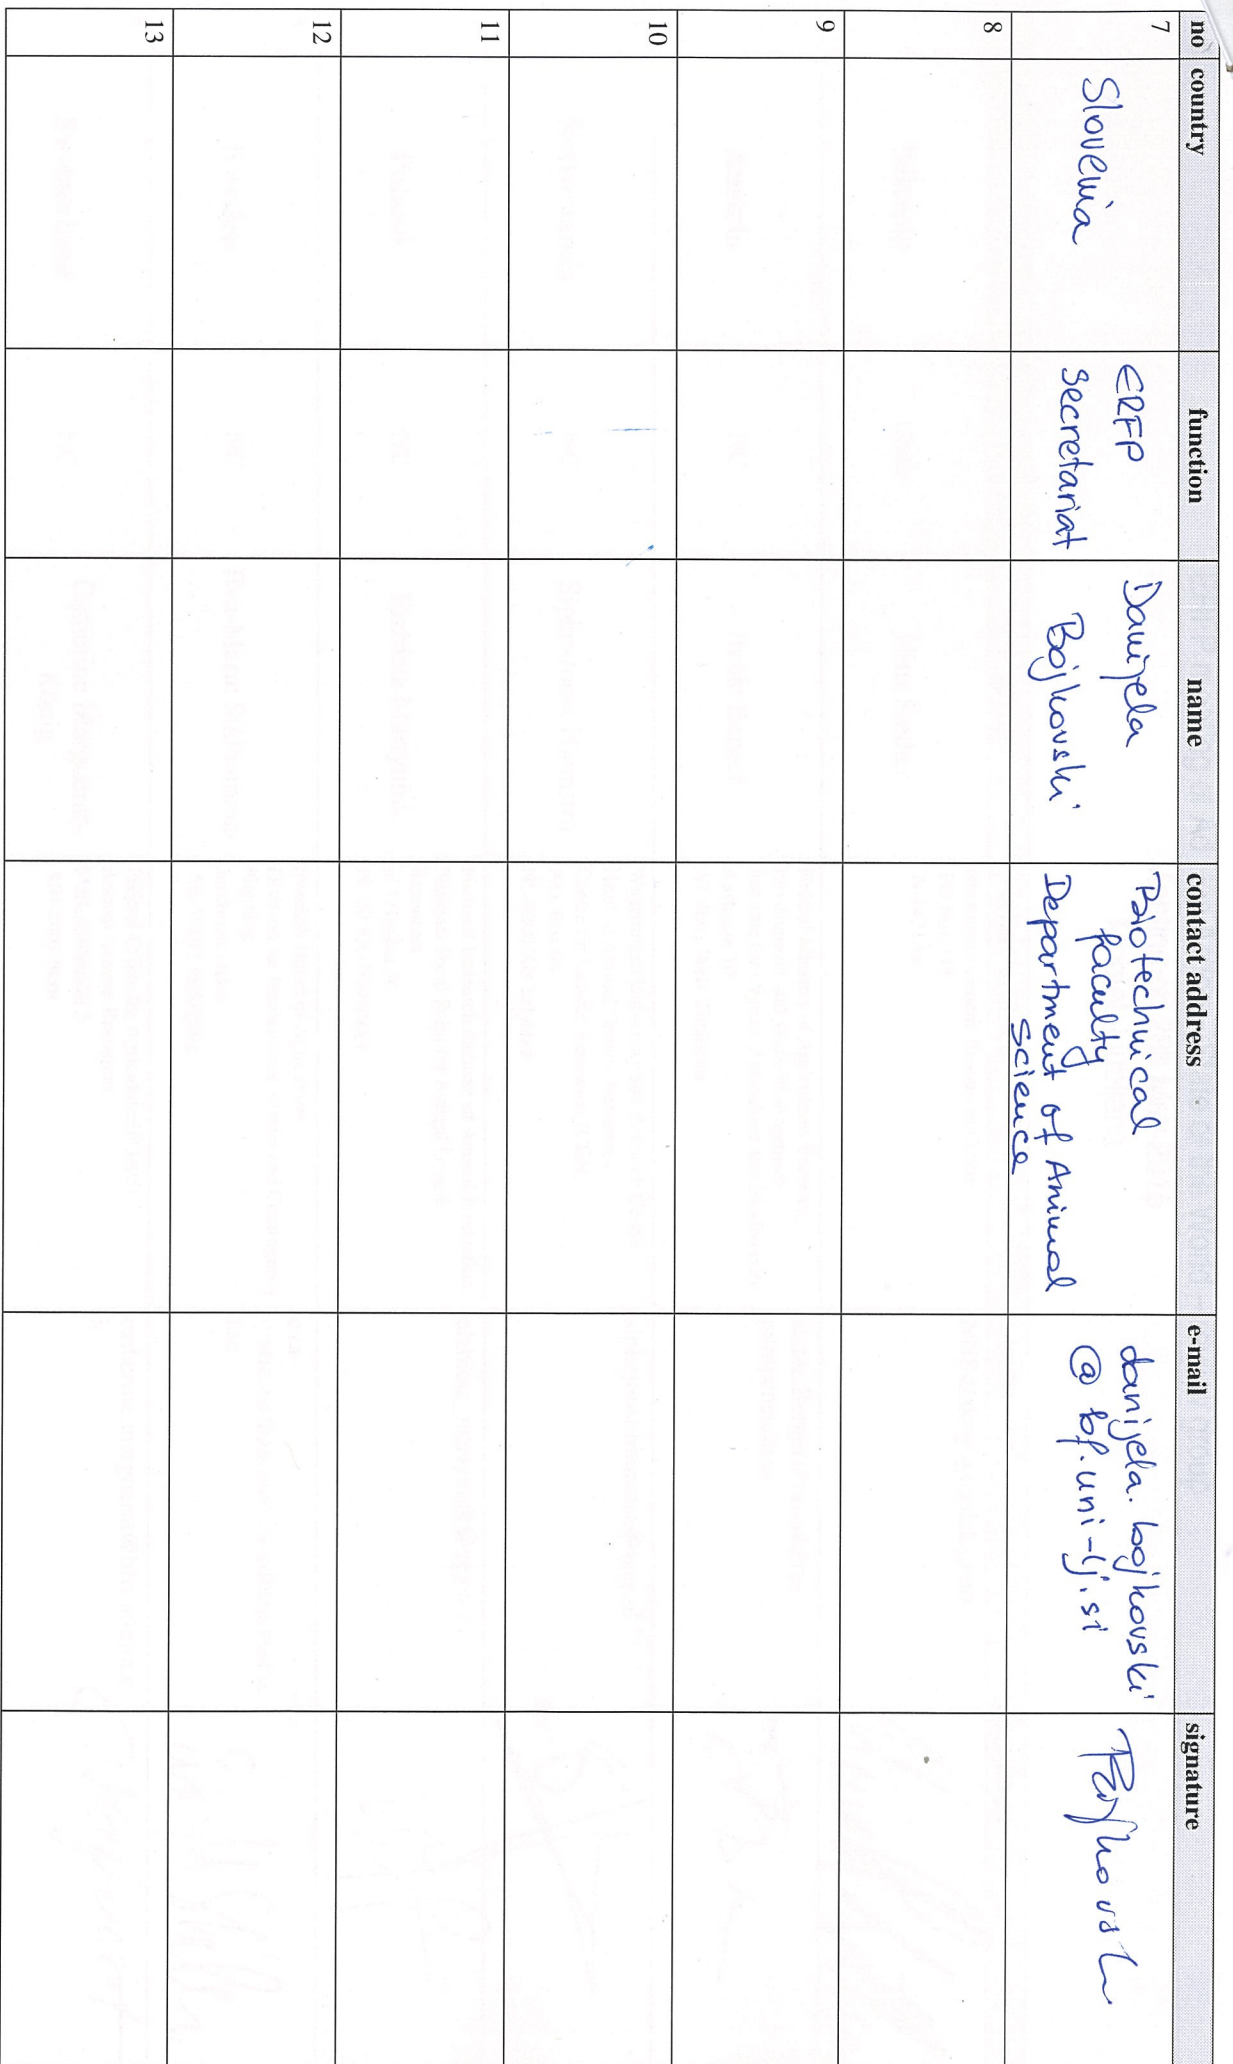 no country function name contact address e-mail signature
7 Slovenia ERFP Secretariat Danijela Bojkovski Biotechnical faculty Department of Animal Science danijela.bojkovski @ bf.uni-lj.si Bojkovski
8
9
10
11
12
13